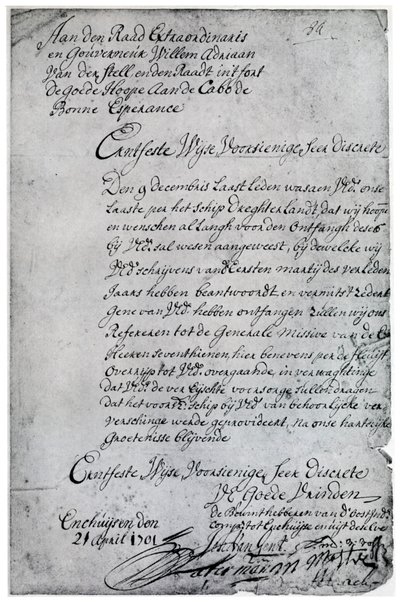 Aan den Raad Extraordinaris
en Gouverneur Willem Adriaan
Van der Stell en den Raadt int fort
de Goede Hoope Aan de Cabo de
Bonne Esperance
Erntfeste Wijse Voorsienige, seer Discrete
Den 9 decembris Laast Leden was aen VEd. onse
Laaste per het Schip Dreghterlandt, dat wij hoopen
en wenschen al Langh voor den Ontfangh deses
bij VEd. sal wesen aangeweest, bij dewelcke wij
VEd. schrijvens van den Eersten martij des verleden
Jaars hebben beantwoordt, en vermits t'zedert
gene van VEd. hebben ontfangen zullen wij ons
Refereren tot de Generale Missive van de
Heeren seventhienen, hier benevens per de fleuijt
Overrijp tot VEd. overgaande, in verwaghtinge
dat VEd. de ver Eijschte voorsorge sullen dragen
dat het voorsz. schip bij VEd. van behoorlijcke ver
verschinge werde geprovideert, na onse hartelijcke
Groetenisse blijvende
Erntfeste Wijse, Voorsienige, seer Discrete
VE Goede Vrinden
De Bewinthebberen van d'Oostind.
Comp. tot Enchuijse
Enchuijsen den
21 April 1701
van Gent